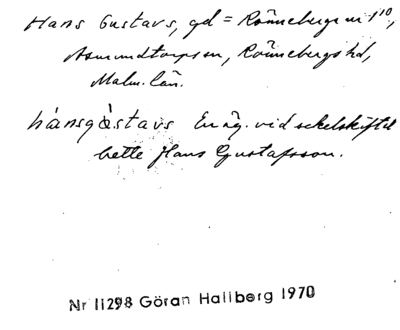 Hans Gustavs, gd = Rönneberga nr 1¹⁰,
Asmundtorps sn, Rönnebergs hd,
Malm. län.
hánsgàstavs En äg. vid sekelskiftet
hette Hans Gustafsson.
Nr 11298 Göran Hallberg 1970